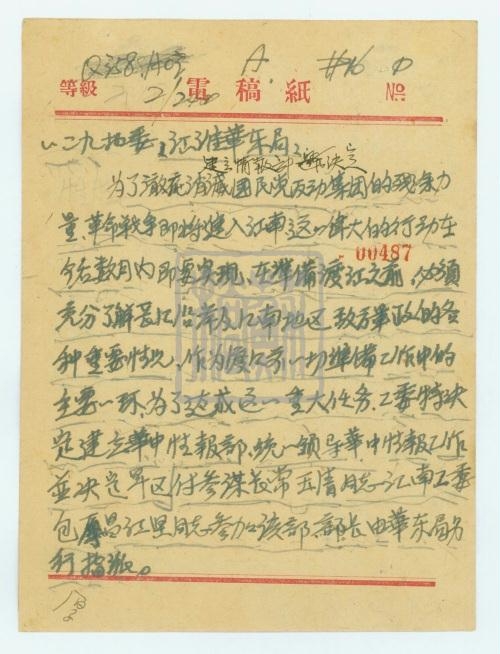 A #16
等級 電稿紙 №
一二九地委,江淮華東局:
建立情報部的決定
为了澈底消滅國民党反动集团的残余力
量,革命战争即将進入江南,这一偉大的行动在
今后数月内即要实現,在準備渡江之前,必須
00487
充分了解長江沿岸及江南地区敌方軍政的各
种重要情况,作为渡江前一切準備工作中的
主要一环,为了达成这一重大任务,工委特决
定建立華中情報部,統一領导華中情報工作
並决定軍区付参謀长常玉清同志,江南工委
包厚昌江里同志参加该部,部长由華东局另
行指派。